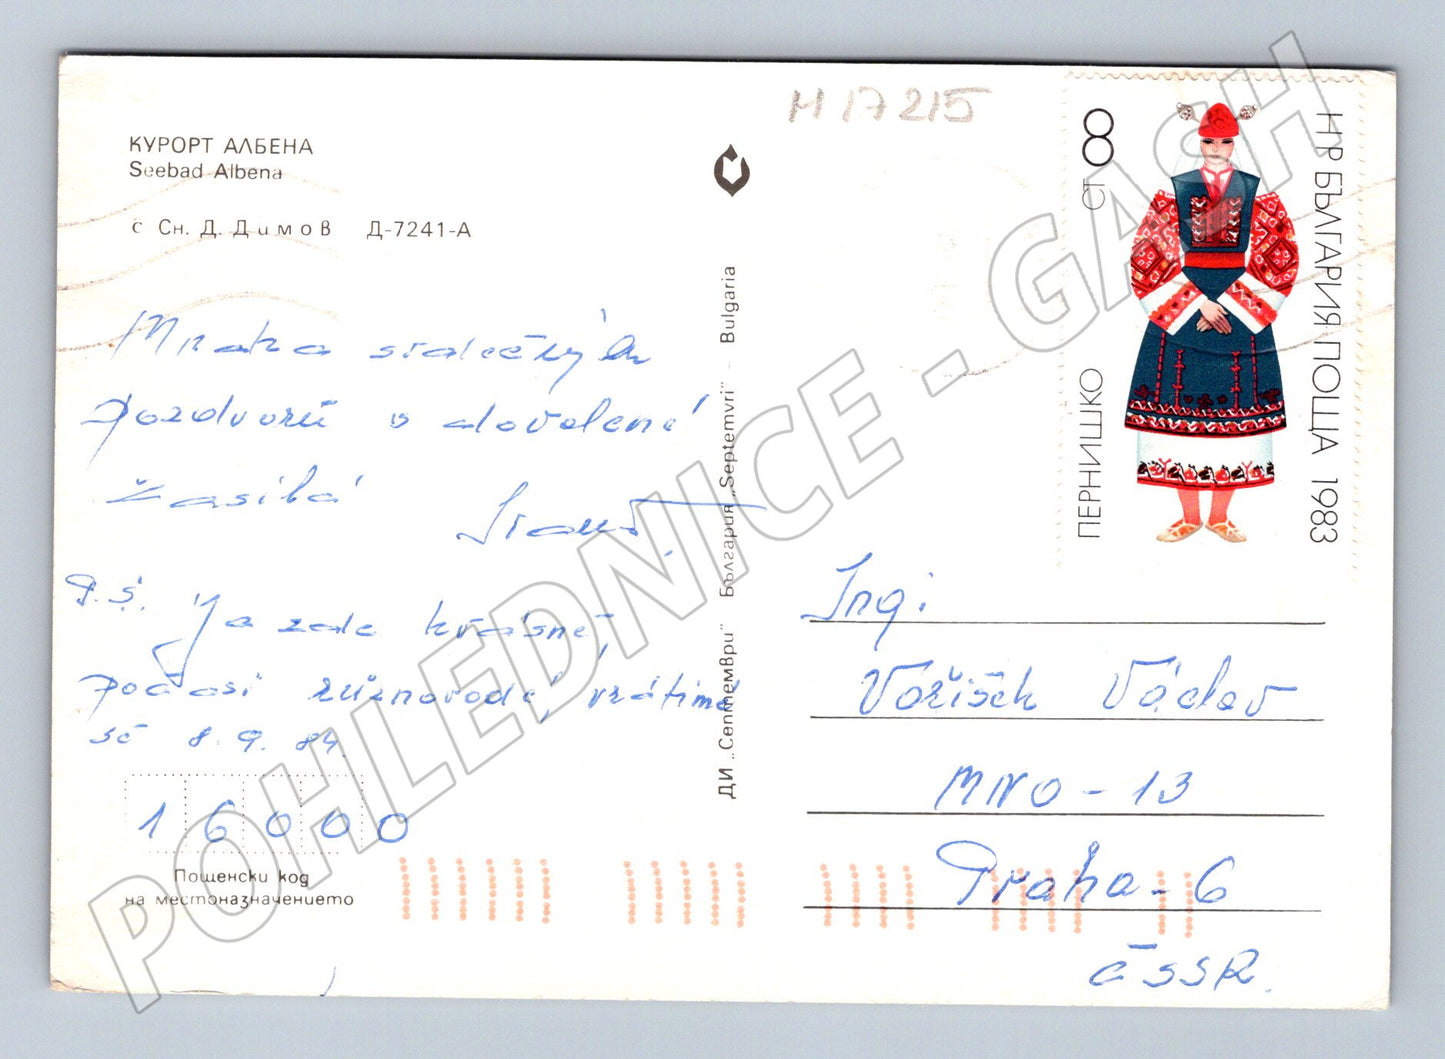 КУРОРТ АЛБЕНА
Seebad Albena
с Сн. Д. Димов Д-7241-А
M 17215
Mnoho srdečných
pozdravů z dovolené
zasílá
P.S. Je zde krásné
počasí různorodé, vrátíme
se 8. 9. 84.
16000
Пощенски код
на местоназначението
ДИ „Септември" България „Septemvri" - Bulgaria
ст 8
НР БЪЛГАРИЯ ПОЩА 1983
ПЕРНИШКО
Ing.
Voříšek Václav
MNO - 13
Praha - 6
ČSSR.
POHLEDNICE - GASH